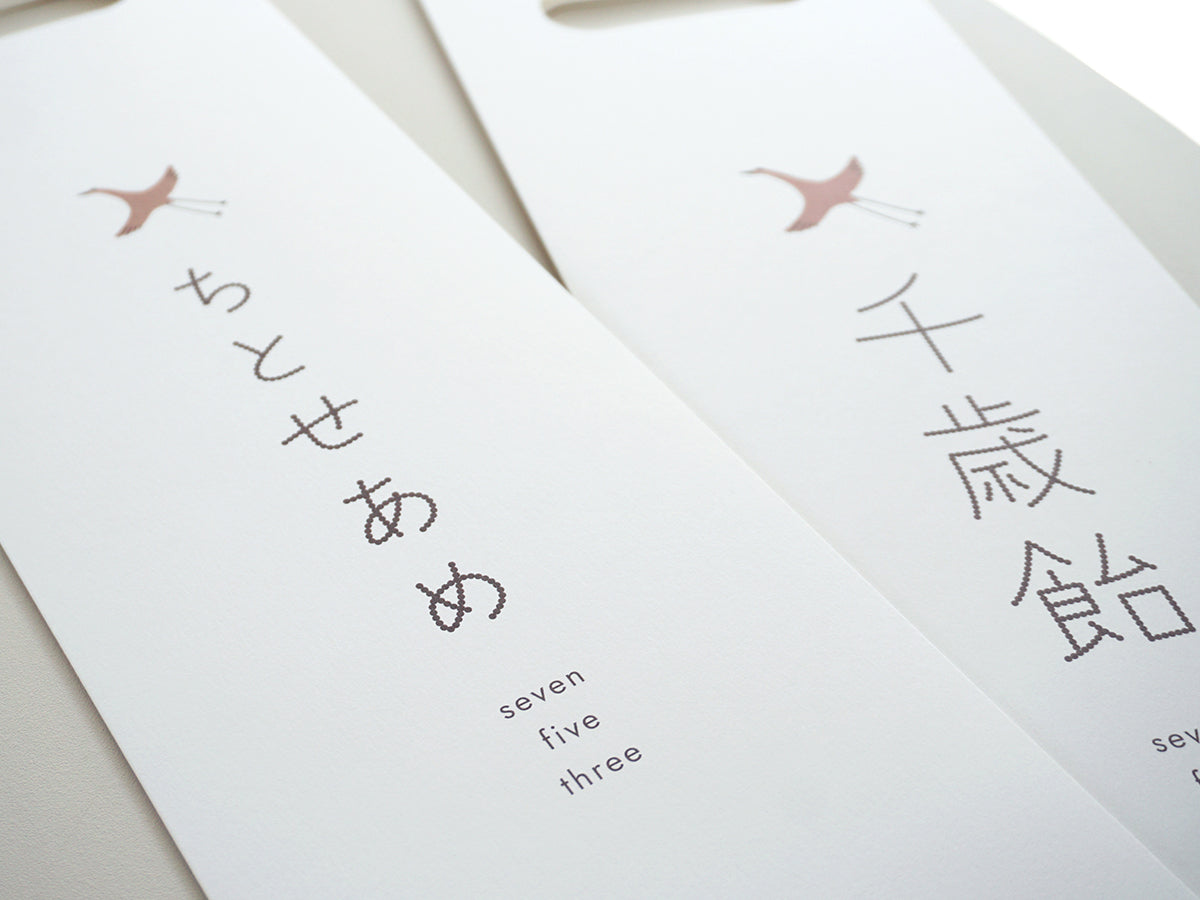 ちとせあめ
seven
five
three
千歳飴